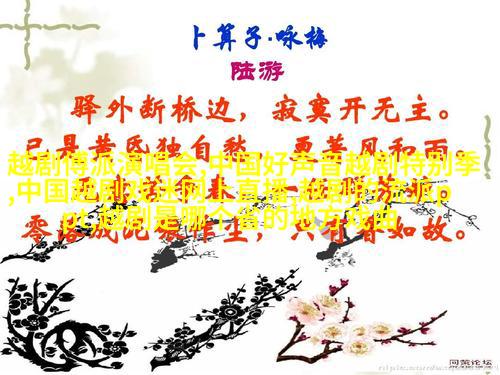 卜算子·咏梅
陆游
驿外断桥边，寂寞开无主。
已是黄昏独自愁，更著风和雨。
越剧傅派演唱会,中国好声音越剧特别季
,中国越剧戏迷网上直播,越剧的流派p
pt,越剧是哪个省的地方戏曲
零落成泥碾作尘，只有香如故。
同茂论坛